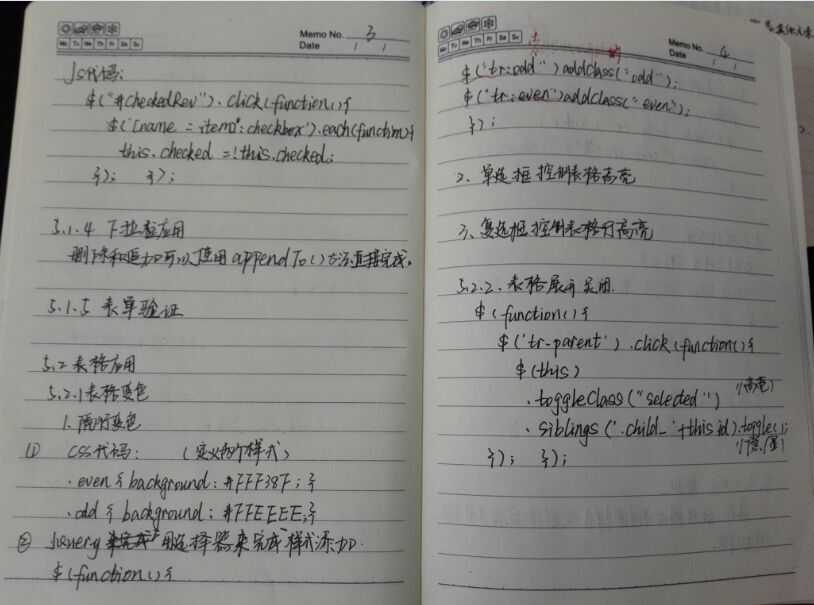 Memo No. 3
Mo Tu We Th Fr Sa Su
Date / /
Js代码:
$("#checkedRev").click(function(){
$('[name=item]:checkbox').each(function(){
this.checked =!this.checked;
}); });
5.1.4 下拉框应用
删除和追加可以使用appendTo()方法直接完成。
5.1.5 表单验证
5.2 表格应用
5.2.1表格变色
1. 隔行变色
① CSS代码: (定义两个样式)
.even { background: #FFF38F; }
.odd { background: #FFEEEE;}
② Jquery 用选择器来完成样式添加.
$(function(){
Memo No. 4
Mo Tu We Th Fr Sa Su
Date / /
$("tr:odd")addClass("odd");
$("tr:even")addClass("even");
});
2. 单选框控制表格高亮
3. 复选框控制表格行高亮
5.2.2. 表格展开关闭.
$(function(){
$('tr.parent').click(function(){
$(this)
.toggleClass("selected") //(高亮)
.siblings('.child_'+this.id).toggle();
//(隐/显)
}); });